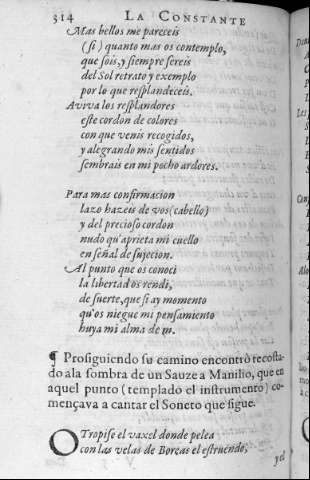 314 LA CONSTANTE
Mas bellos me pareceis
(si) quanto mas os contemplo,
que sois, y siempre sereis
del Sol retrato y exemplo
por lo que resplandeceis.
Aviva los resplandores
este cordon de colores
con que venis recogidos,
y alegrando mis sentidos
sembrais en mi pecho ardores.
Para mas confirmacion
lazo hazeis de vos (cabello)
y del precioso cordon
nudo qu'aprieta mi cuello
en señal de sujecion.
Al punto que os conoci
la libertad os rendi,
de suerte, que si ay momento
qu'os niegue mi pensamiento
huya mi alma de mi.
¶ Prosiguiendo su camino encontrò recosta-
do ala sombra de un Sauze a Manilio, que en
aquel punto (templado el instrumento) co-
mençava a cantar el Soneto que sigue.
OTropise el vaxel donde pelea
con las velas de Boreas el estruendo,
yel